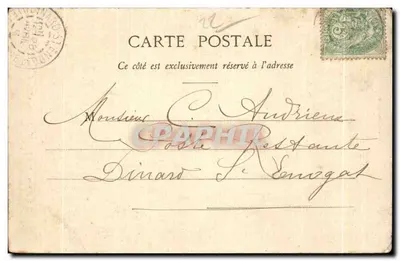 CARTE POSTALE
Ce côté est exclusivement réservé à l'adresse
Monsieur C. Andrieu
CPAPHIL
Poste Restante
Dinard St Enogat